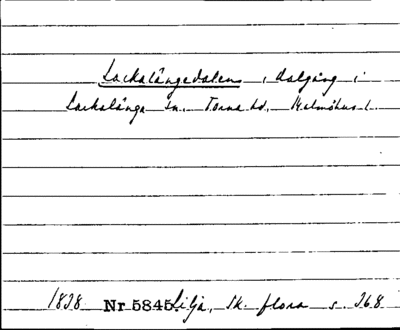 Lackalångedalen, dalgång i
Lackalånga sn. Torna hd, Malmöhus l.
1838 Nr 5845. Lilja, Sk. flora s. 268